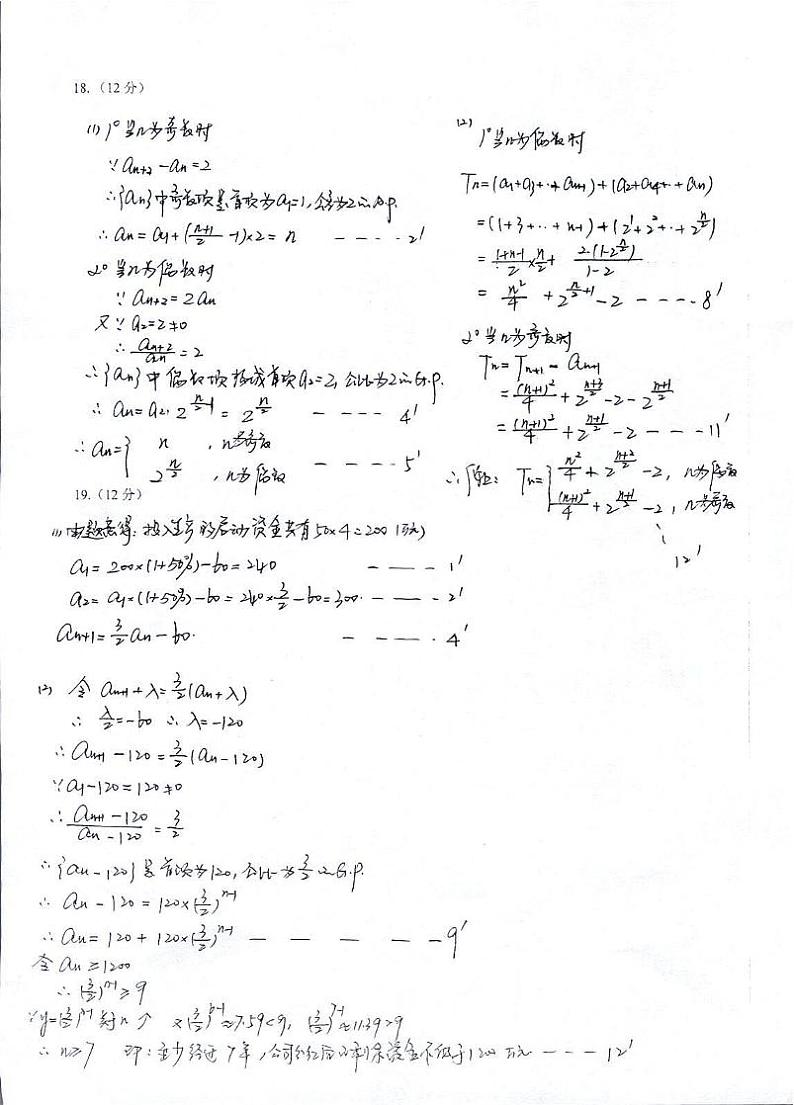 18. (12分)
(1) 1° 当n为奇数时
∵ an+2 - an = 2
∴ {an}中奇数项是首项为a1=1, 公差为2的A.P.
∴ an = a1 + (n+1/2 - 1)×2 = n ---- 2'
2° 当n为偶数时
∵ an+2 = 2an
又∵ a2 = 2 ≠ 0
∴ an+2/an = 2
∴ {an}中偶数项构成首项a2=2, 公比为2的G.P.
∴ an = a2·2^(n/2-1) = 2^(n/2) ---- 4'
∴ an = { n , n为奇数
2^(n/2) , n为偶数 ---- 5'
(2) 1° 当n为偶数时
Tn = (a1+a3+··+an-1) + (a2+a4+··+an)
= (1+3+··+n-1) + (2^1+2^2+··+2^(n/2))
= 1+n-1/2 × n/2 + 2·(1-2^(n/2))/1-2
= n^2/4 + 2^(n/2+1) - 2 ---- 8'
2° 当n为奇数时
Tn = Tn+1 - an+1
= (n+1)^2/4 + 2^(n+3/2) - 2 - 2^(n+1/2)
= (n+1)^2/4 + 2^(n+1/2) - 2 --- 11'
∴ 综上: Tn = { n^2/4 + 2^(n+2/2) - 2, n为偶数
(n+1)^2/4 + 2^(n+1/2) - 2, n为奇数
12'
19. (12分)
(1) 由题意得: 投入生产的启动资金共有50×4=200 (万元)
a1 = 200×(1+50%) - 60 = 240 ---- 1'
a2 = a1×(1+50%) - 60 = 240×3/2 - 60 = 300. ---- 2'
an+1 = 3/2 an - 60. ---- 4'
(2) 令 an+1 + λ = 3/2 (an + λ)
∴ λ/2 = -60 ∴ λ = -120
∴ an+1 - 120 = 3/2 (an - 120)
∵ a1 - 120 = 120 ≠ 0
∴ an+1 - 120/an - 120 = 3/2
∴ {an - 120}是首项为120, 公比为3/2的G.P.
∴ an - 120 = 120×(3/2)^(n-1)
∴ an = 120 + 120×(3/2)^(n-1) ----- 9'
令 an ≥ 1200
∴ (3/2)^(n-1) ≥ 9
∵ y = (3/2)^(n-1) 关于n ↑ 又(3/2)^(6-1) ≈ 7.59 < 9, (3/2)^(7-1) ≈ 11.39 > 9
∴ n ≥ 7 即: 至少经过7年, 公司分红后的剩余资金不低于1200万元 --- 12'